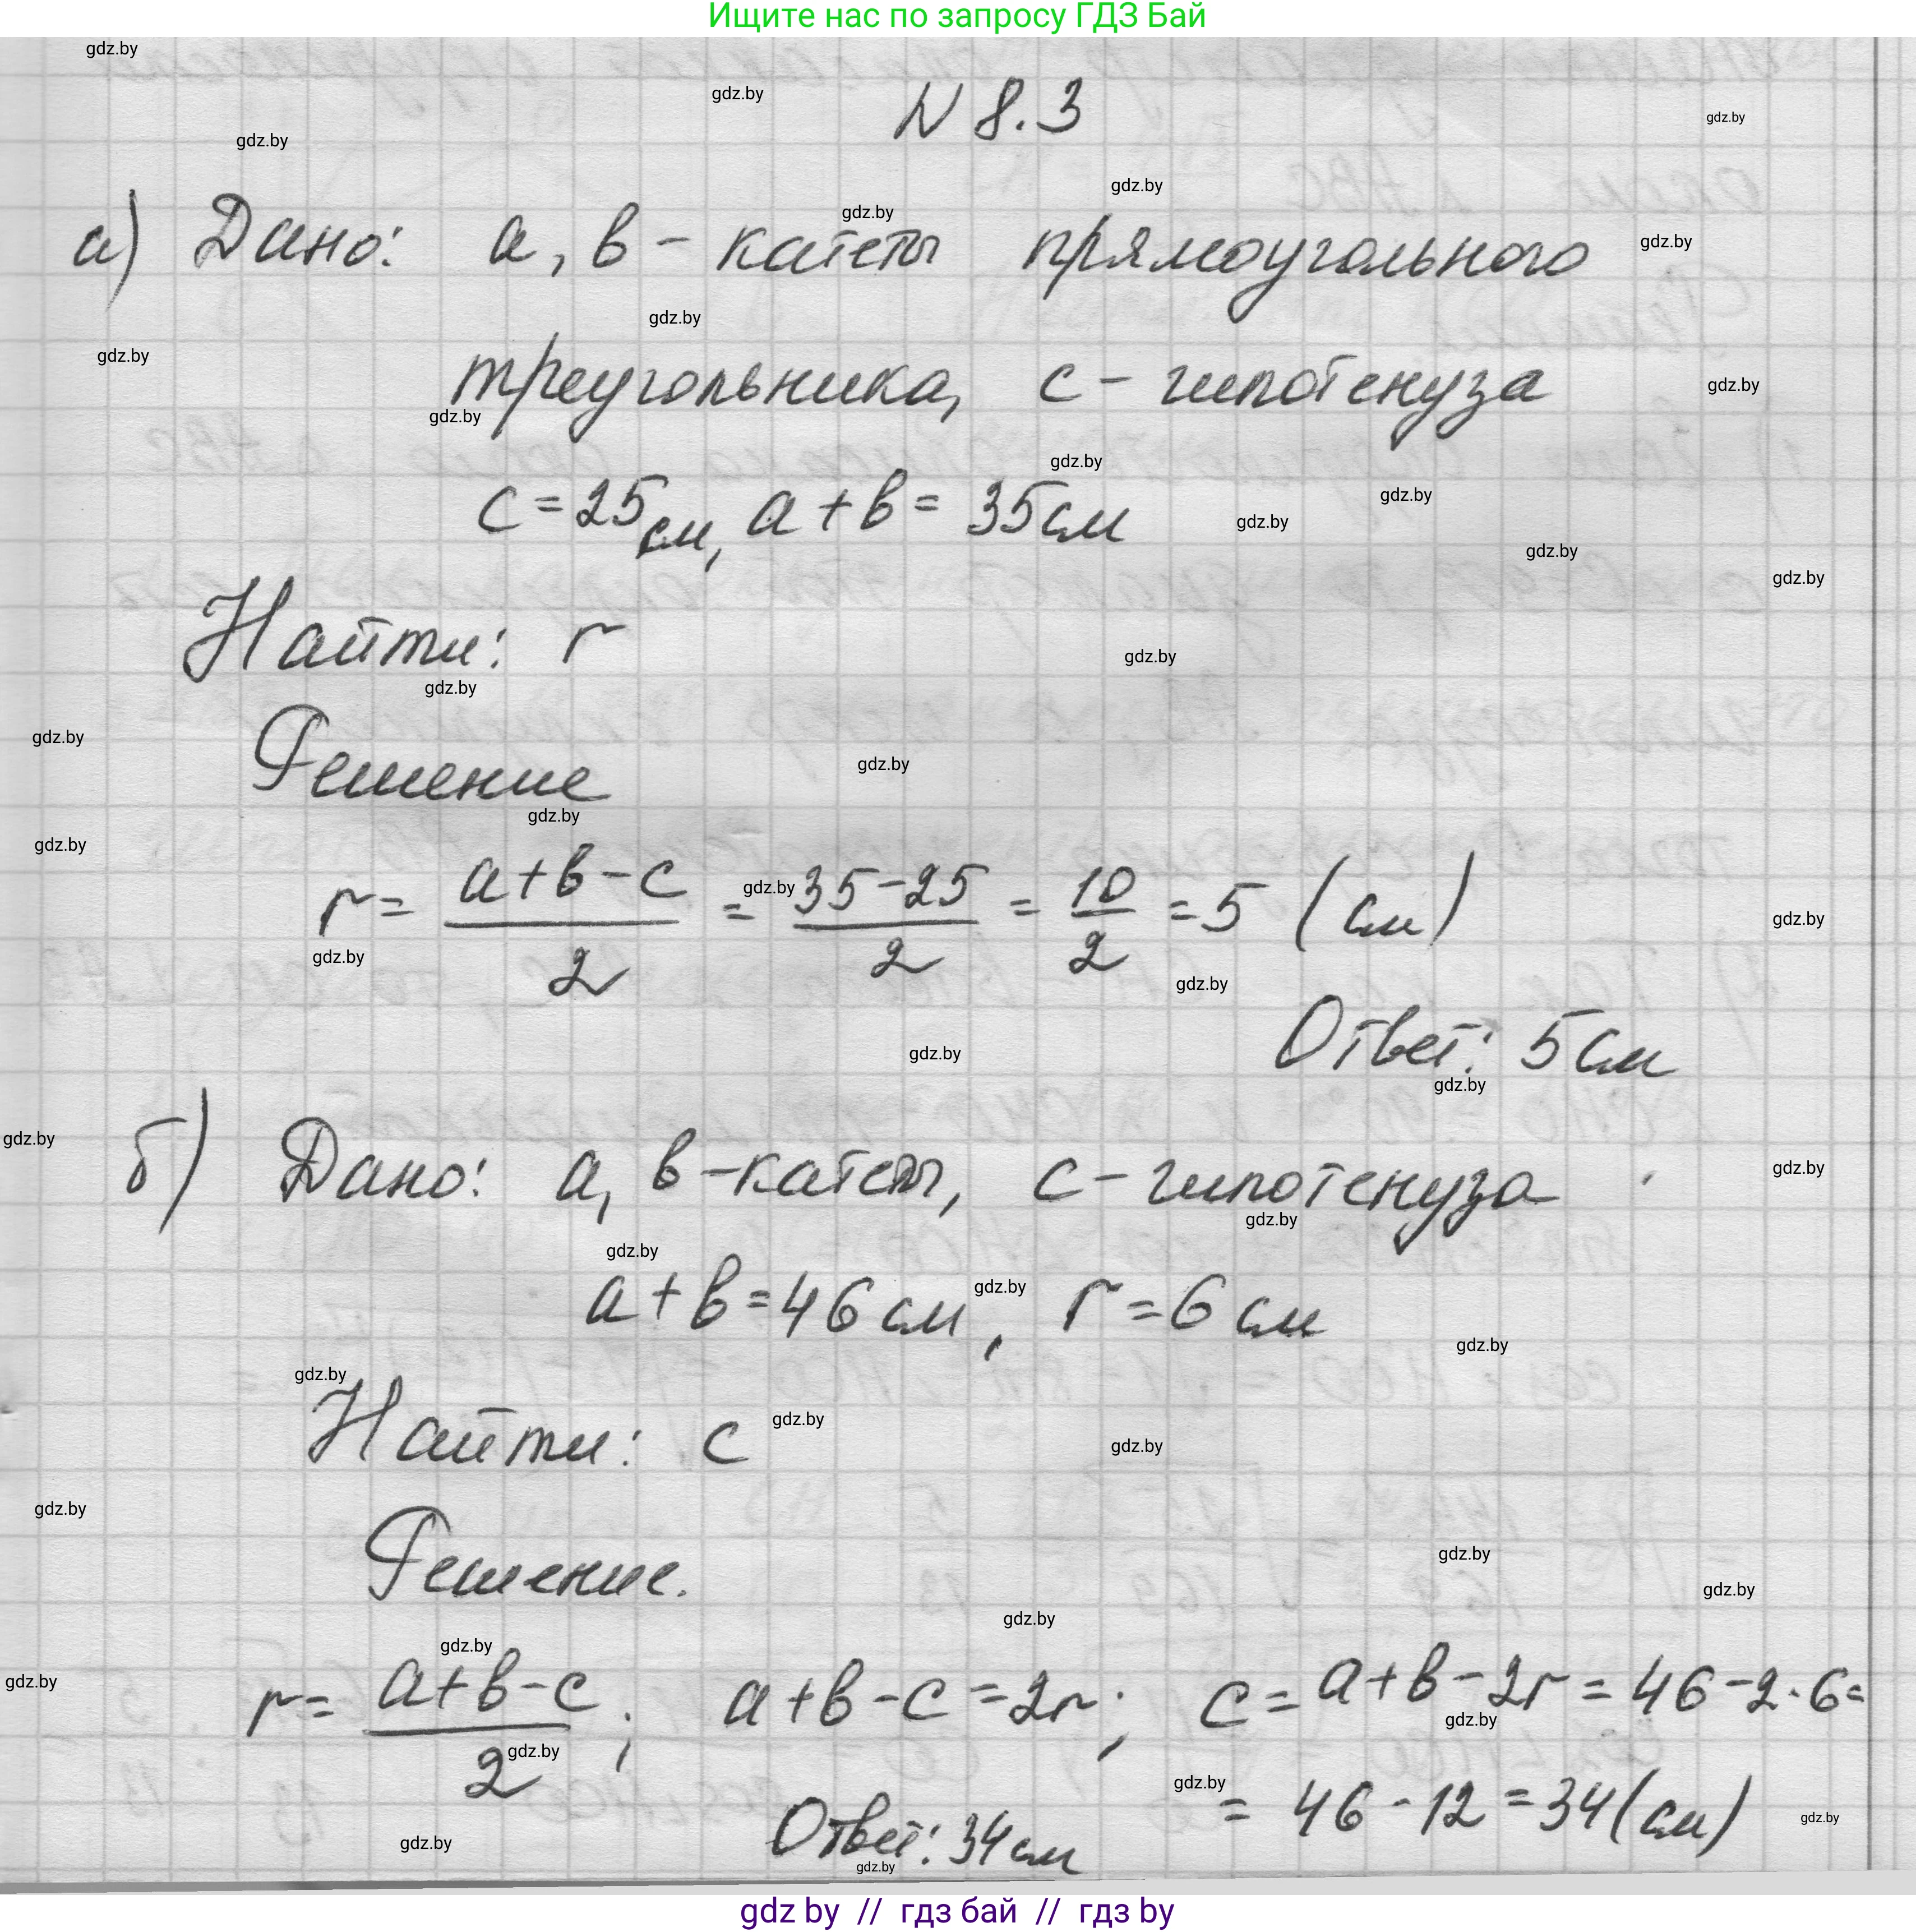 Ищите нас по запросу ГДЗ Бай
N 8.3
а) Дано: a, b - катеты прямоугольного
треугольника, c - гипотенуза
c = 25 см, a + b = 35 см
Найти: r
Решение
r = (a + b - c)/2 = (35 - 25)/2 = 10/2 = 5 (см)
Ответ: 5 см
б) Дано: a, b - катеты, c - гипотенуза
a + b = 46 см, r = 6 см
Найти: c
Решение.
r = (a + b - c)/2 ; a + b - c = 2r ; c = a + b - 2r = 46 - 2 · 6 =
= 46 - 12 = 34 (см)
Ответ: 34 см
gdz by // гдз бай // гдз by